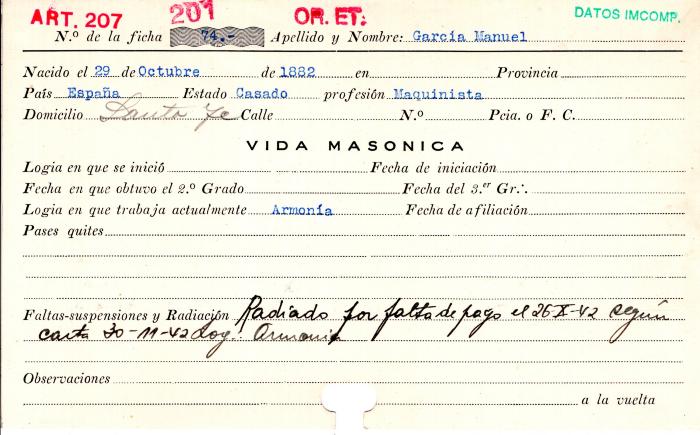 ART. 207 201 OR. ET. DATOS IMCOMP.
N.º de la ficha 74.- Apellido y Nombre: García Manuel
Nacido el 29 de Octubre de 1882 en Provincia
País España Estado Casado profesión Maquinista
Domicilio Santa Fe Calle N.º Pcia. o F. C.
VIDA MASONICA
Logia en que se inició Fecha de iniciación
Fecha en que obtuvo el 2.º Grado Fecha del 3.er Gr.·.
Logia en que trabaja actualmente Armonía Fecha de afiliación
Pases quites
Faltas-suspensiones y Radiación Radiado por falta de pago el 26-X-42 según
carta 30-11-42 Log. Armonia
Observaciones
a la vuelta